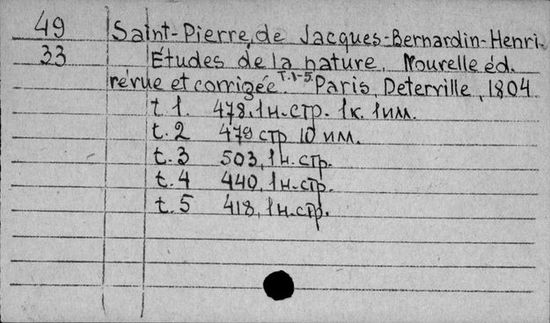 49 Saint-Pierre, de Jacques-Bernardin-Henri.
33 Études de la nature. Nourelle éd.
révue et corrigée. T.1-5. Paris, Deterville, 1804
t. 1. 478, 1 н. стр. 1 к. 1 илл.
t. 2 479 стр 10 илл.
t. 3 503, 1 н. стр.
t. 4 440, 1 н. стр.
t. 5 418, 1 н. стр.